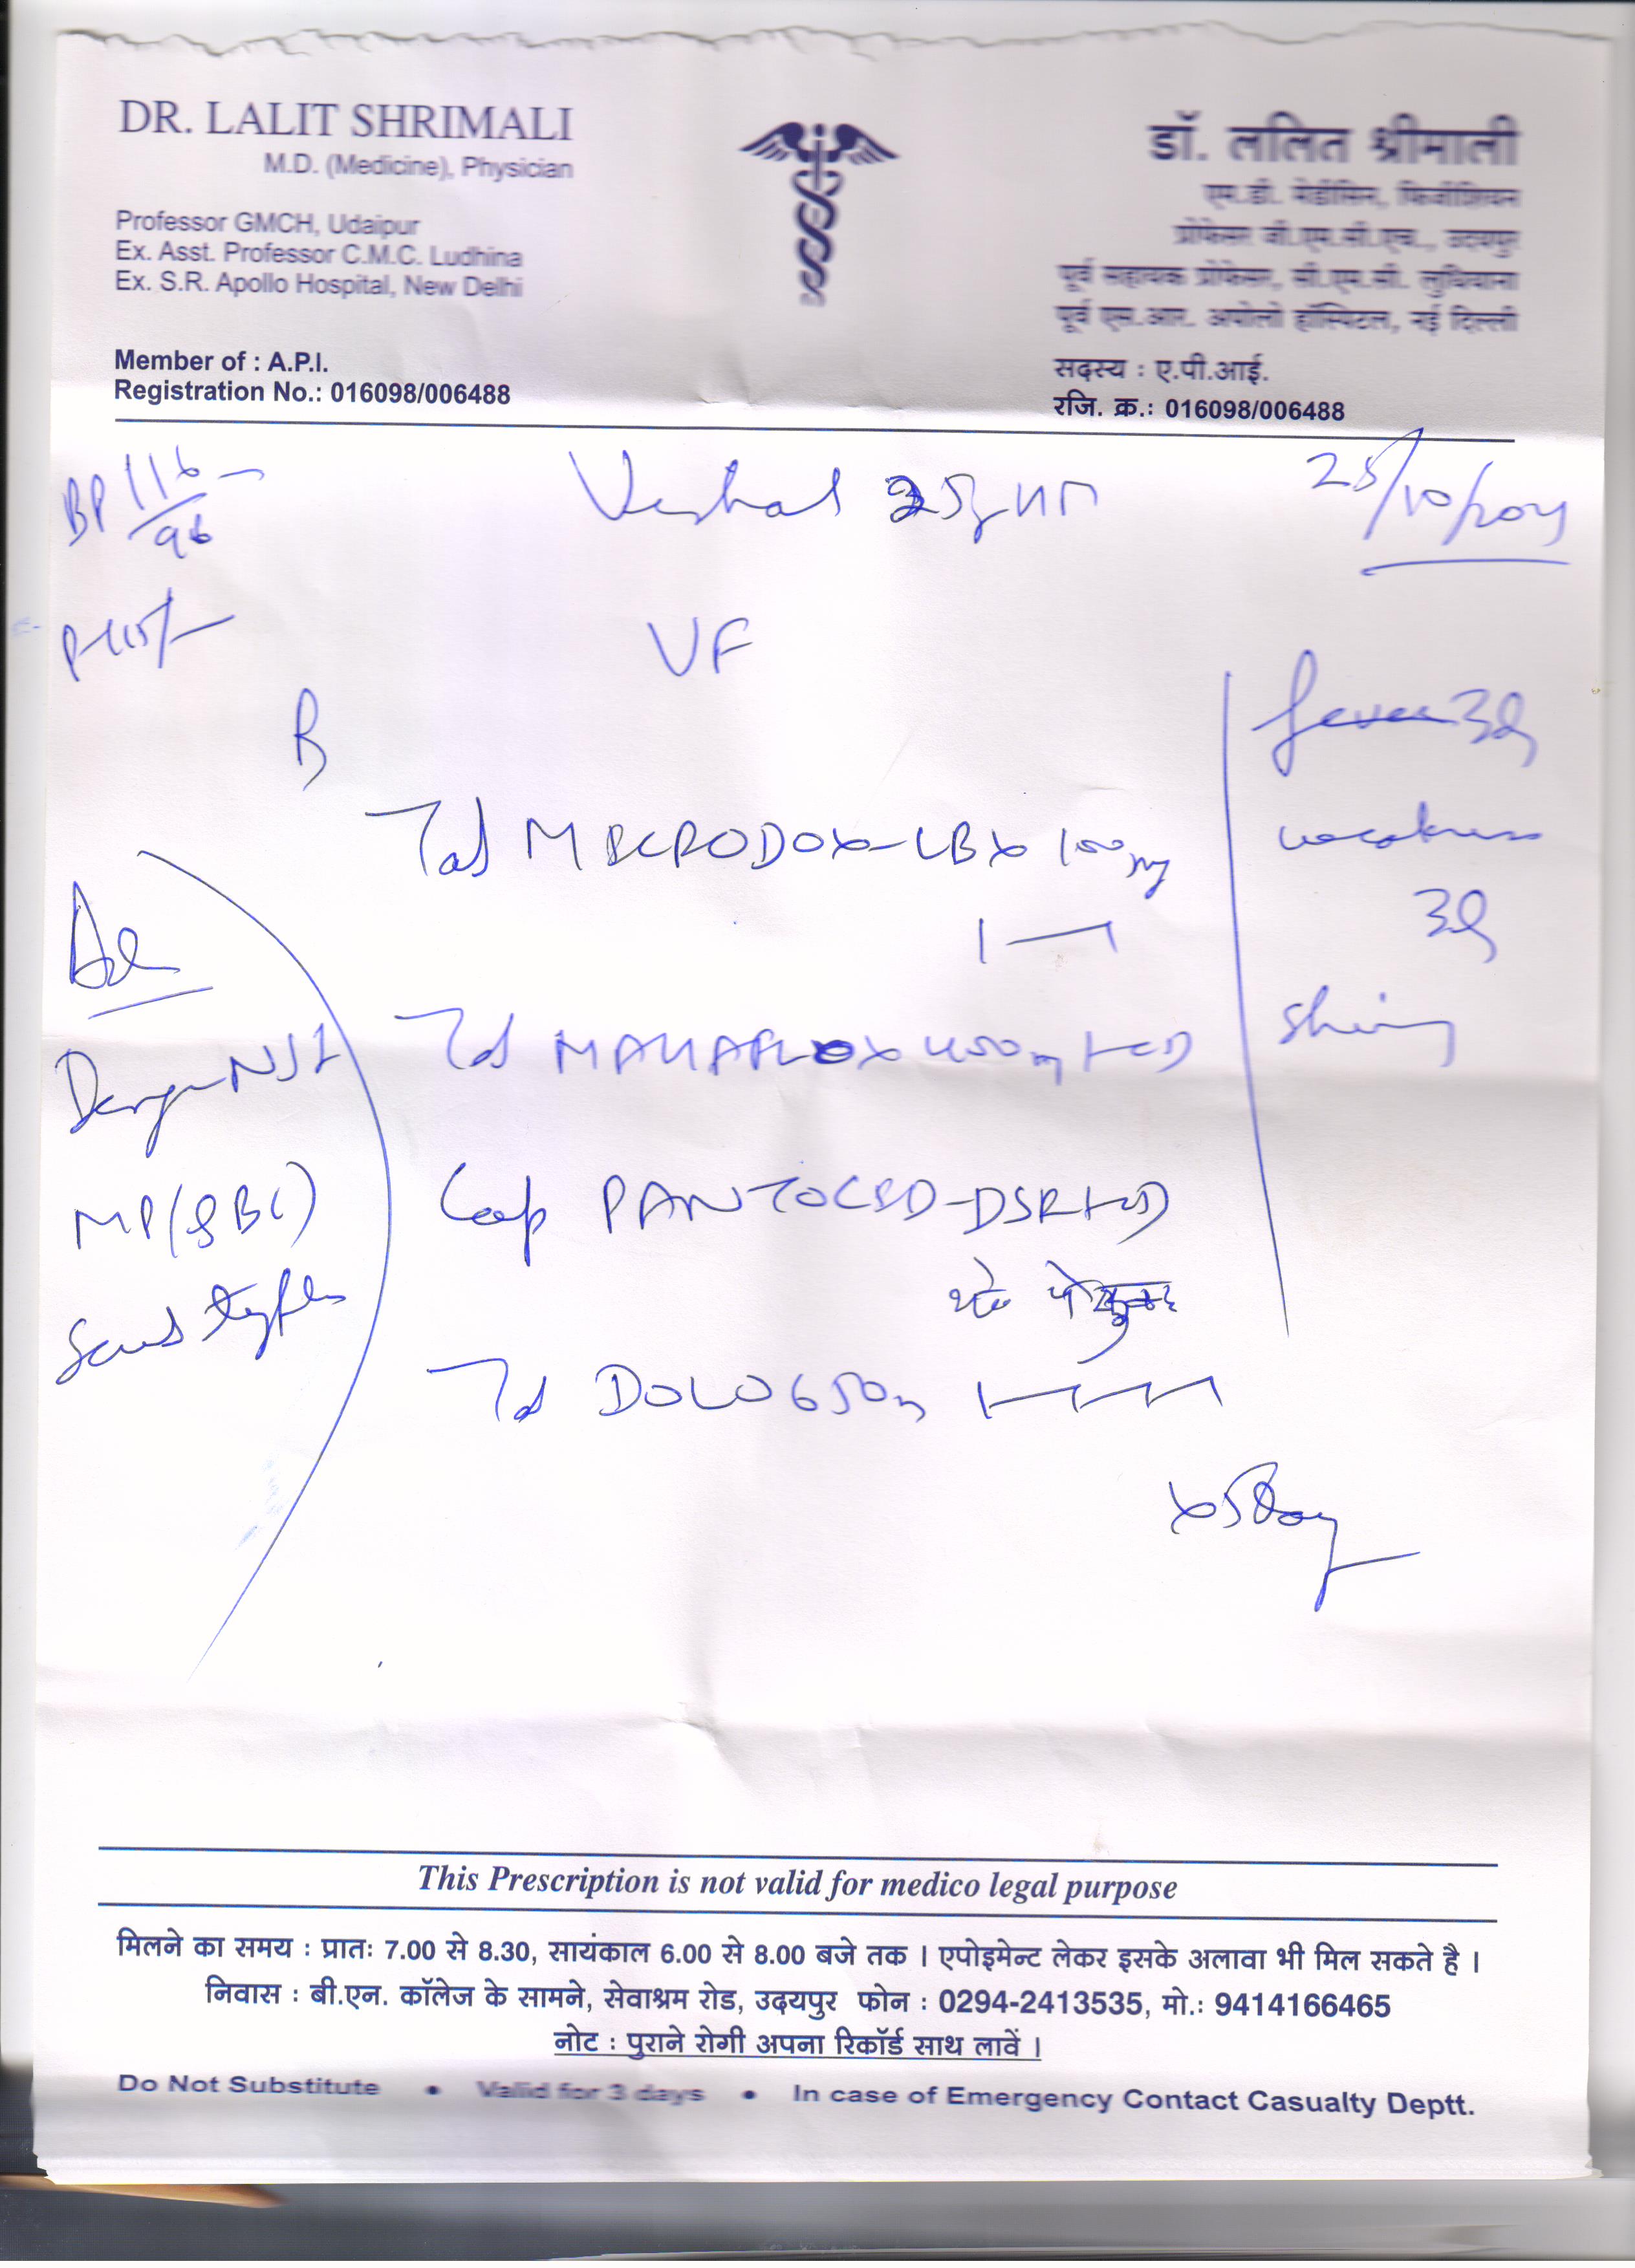 DR. LALIT SHRIMALI
M.D. (Medicine), Physician
Professor GMCH, Udaipur
Ex. Asst. Professor C.M.C. Ludhina
Ex. S.R. Apollo Hospital, New Delhi
Member of : A.P.I.
Registration No.: 016098/006488
डॉ. ललित श्रीमाली
एम.डी. मेडीसिन, फिजीशियन
प्रोफेसर जी.एम.सी.एच., उदयपुर
पूर्व सहायक प्रोफेसर, सी.एम.सी. लुधियाना
पूर्व एस.आर. अपोलो हॉस्पिटल, नई दिल्ली
सदस्य : ए.पी.आई.
रजि. क्र.: 016098/006488
BP 116/96
VF
fever 3d
weakness
3d
Tab MICRODOX-LBX 100mg
1—1
Adv
Dengue NS1
MP (QBC)
Tab MAHAFLOX 400mg 1-OD
Cap PANTOCID-DSR 1-OD
Tab DOLO 650m
x 5 day
This Prescription is not valid for medico legal purpose
मिलने का समय : प्रातः 7.00 से 8.30, सायंकाल 6.00 से 8.00 बजे तक । एपोइमेन्ट लेकर इसके अलावा भी मिल सकते है ।
निवास : बी.एन. कॉलेज के सामने, सेवाश्रम रोड, उदयपुर फोन : 0294-2413535, मो.: 9414166465
नोट : पुराने रोगी अपना रिकॉर्ड साथ लावें ।
Do Not Substitute • Valid for 3 days • In case of Emergency Contact Casualty Deptt.